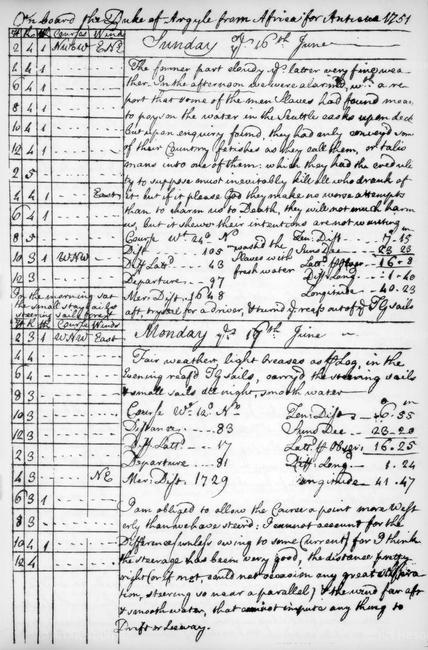 On board the Duke of Argyle from Africa for Antigua 1751
H K F Courses Winds
Sunday ye 16th June
2 4 1 NWbW ENE
4 4 1 The former part cloudy ye latter very fine wea-
6 4 1 ther. In the afternoon we were alarm'd wth a re-
8 4 1 port that some of the men Slaves had found means
10 4 1 to poyson the water in the Scuttle casks upon deck
but upon enquiry found, they had only convey'd some
12 4 1 of their Country fetishes as they call them, or talis
mans into one of them: which they had the credulity
2 5 to suppose must inevitably kill all who drank of
4 4 1 East it but if it please God they make no worse attempts
6 4 1 than to charm us to Death, they will not much harm
us, but it shews their intentions are not wanting
8 5 Course Wt 24° N Zen: Dist 17.15
Dist 105 washd the Suns Dec 23.23
10 3 1 WNW Diff Lattd 43 Slaves with Lattd pr Obser 16-8
12 3 Departure 97 fresh water Diff Longd 1-40
Mer: Dist 1648 Longitude 40.23
In the morning set
the small stay sails
steering sails forest
aft, tryed for a driver, & turn'd ye reefs out of ye TG sails
H K F Courses Winds
Monday ye 17th June
2 3 1 WNW East
4 4 Fair weather, light breezes as pr Log, in the
6 4 Evening reef'd TG sails, carryd the steering sails
8 3 & small sails all night, smooth water
10 3 Course Wt 12° N Zen: Dist 6-35
12 3 Distance 83 Suns Dec 23-20
Diff Lattd 17 Lattd pr Obser: 16-25
2 3 Departure 81 Diff: Longd 1.24
4 3 NE Mer: Dist 1729 Longitude 41-47
6 3 1 I am obliged to allow the Course a point more West
8 3 erly than we have steerd: I cannot account for the
10 4 1 Difference (unless owing to some Current) for I think
the steerage has been very good, the distance pretty
12 4 right (or if not, could not occasion any great
tion, steering so near a parallel) & the wind far aft
& smooth water, that cannot impute any thing to
Drift or Leeway.